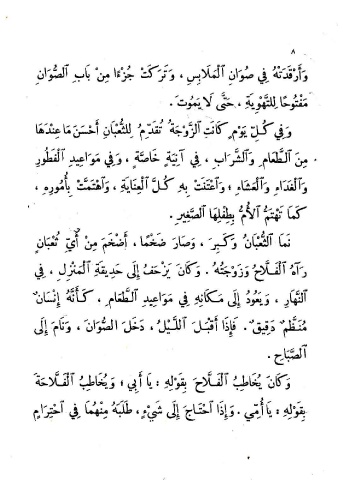 ٨
وَأَرْقَدَتْهُ فِي صُوَانِ الْمَلَابِسِ ، وَتَرَكَتْ جُزْءًا مِنْ بَابِ الصُّوَانِ
مَفْتُوحًا لِلتَّهْوِيَةِ ، حَتَّى لَا يَمُوتَ .
وَفِي كُلِّ يَوْمٍ كَانَتِ الزَّوْجَةُ تُقَدِّمُ لِلثُّعْبَانِ أَحْسَنَ مَا عِنْدَهَا
مِنَ الطَّعَامِ وَالشَّرَابِ ، فِي آنِيَةٍ خَاصَّةٍ ، وَفِي مَوَاعِيدِ الْفَطُورِ
وَالْغَدَاءِ وَالْعَشَاءِ ؛ وَاعْتَنَتْ بِهِ كُلَّ الْعِنَايَةِ ، وَاهْتَمَّتْ بِأُمُورِهِ ،
كَمَا تَهْتَمُّ الْأُمُّ بِطِفْلِهَا الصَّغِيرِ .
نَمَا الثُّعْبَانُ وَكَبِرَ ، وَصَارَ ضَخْمًا ، أَضْخَمَ مِنْ أَيِّ ثُعْبَانٍ
رَآهُ الْفَلَّاحُ وَزَوْجَتُهُ . وَكَانَ يَزْحَفُ إِلَى حَدِيقَةِ الْمَنْزِلِ ، فِي
النَّهَارِ ، وَيَعُودُ إِلَى مَكَانِهِ فِي مَوَاعِيدِ الطَّعَامِ ، كَأَنَّهُ إِنْسَانٌ
مُنَظَّمٌ دَقِيقٌ . فَإِذَا أَقْبَلَ اللَّيْلُ ، دَخَلَ الصُّوَانَ ، وَنَامَ إِلَى
الصَّبَاحِ .
وَكَانَ يُخَاطِبُ الْفَلَّاحَ بِقَوْلِهِ : يَا أَبِي ؛ وَيُخَاطِبُ الْفَلَّاحَةَ
بِقَوْلِهِ : يَا أُمِّي . وَإِذَا احْتَاجَ إِلَى شَيْءٍ ، طَلَبَهُ مِنْهُمَا فِي احْتِرَامٍ